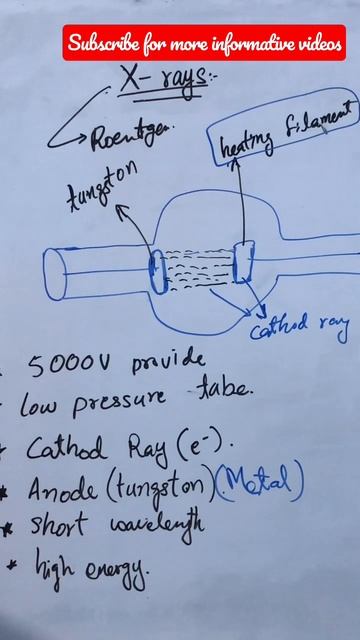 Subscribe for more informative videos
X-rays:-
Roentgen.
heating filament
tungston
Cathod ray
5000V provide
low pressure tabe.
Cathod Ray (e-).
* Anode (tungston) (Metal)
* short wavelength
* high energy.